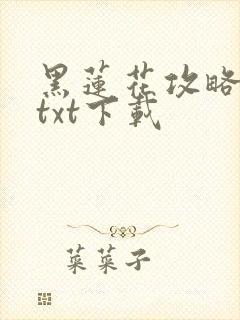 黑蓮花攻略
txt下載
菜菜子